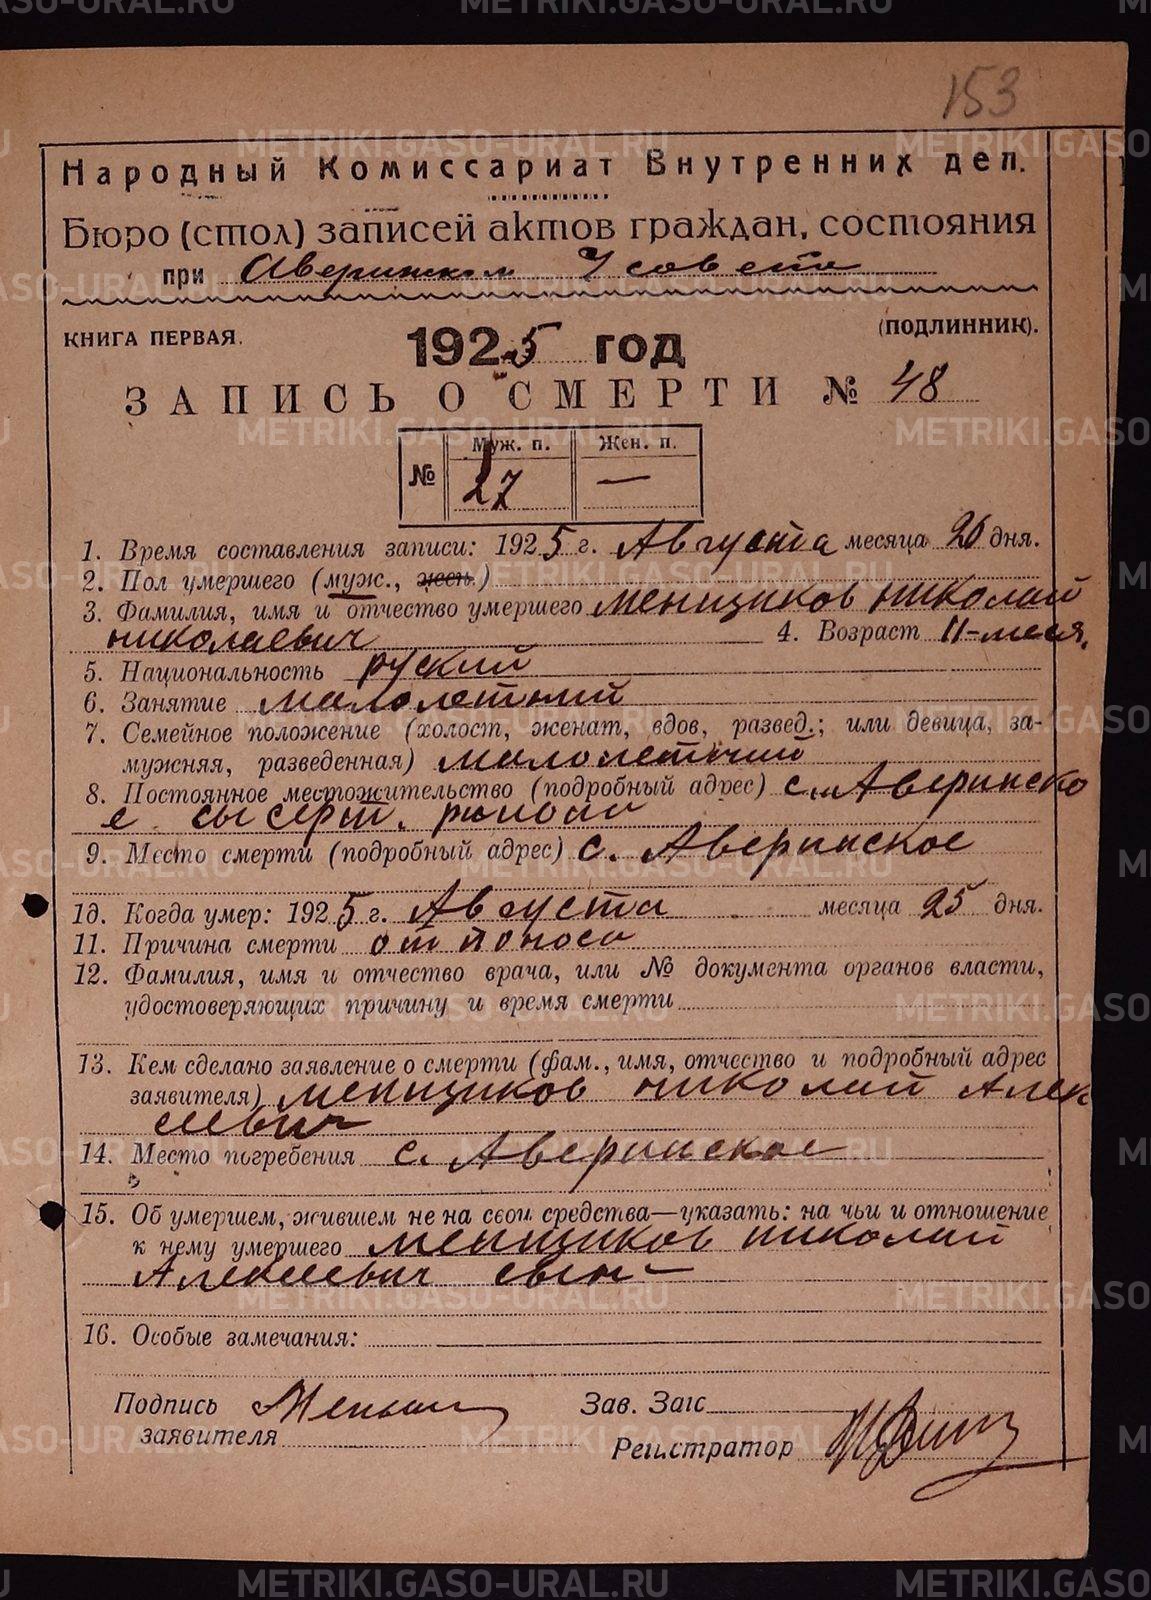 153
Народный Комиссариат Внутренних дел.
Бюро (стол) записей актов граждан, состояния
при Аверинском У совете
КНИГА ПЕРВАЯ. 1925 год (ПОДЛИННИК).
ЗАПИСЬ О СМЕРТИ № 48
Муж. п. Жен. п.
№ 27 —
1. Время составления записи: 1925 г. Августа месяца 26 дня.
2. Пол умершего (муж., жен.)
3. Фамилия, имя и отчество умершего Менщиков Николай
Николаевич 4. Возраст 11-меся.
5. Национальность руский
6. Занятие малолетний
7. Семейное положение (холост, женат, вдов, развед.; или девица, за-
мужняя, разведенная) малолетний
8. Постоянное местожительство (подробный адрес) с. Аверинско
е сысерт.
9. Место смерти (подробный адрес) с. Аверинское
1д. Когда умер: 1925 г. Августа месяца 25 дня.
11. Причина смерти от поноса
12. Фамилия, имя и отчество врача, или № документа органов власти,
удостоверяющих причину и время смерти
13. Кем сделано заявление о смерти (фам., имя, отчество и подробный адрес
заявителя) Менщиков Николай Алек
сеевич
14. Место погребения с. Аверинское
15. Об умершем, жившем не на свои средства—указать: на чьи и отношение
к нему умершего Менщиков Николай
Алексеевич сын
16. Особые замечания:
Подпись Зав. Загс
заявителя
Регистратор
METRIKI.GASO-URAL.RU